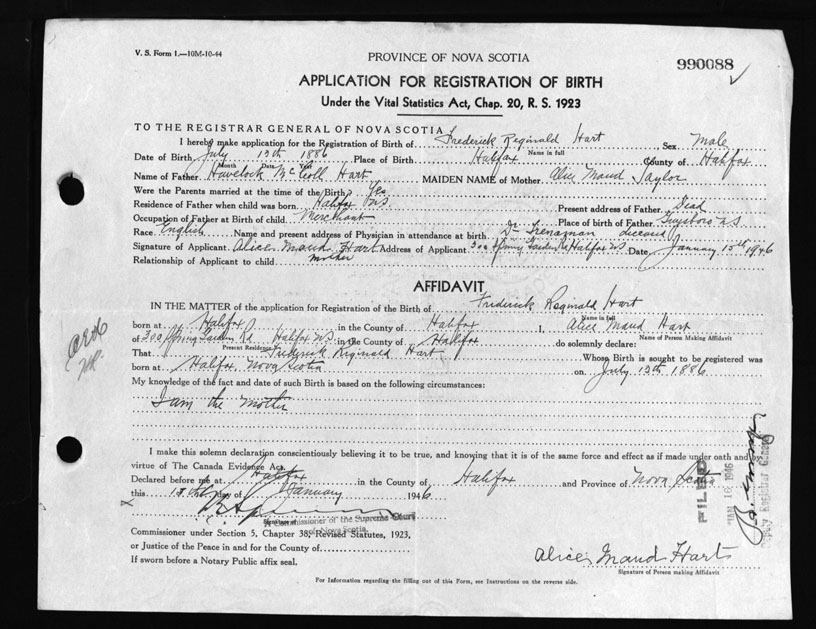 V. S. Form 1.—10M-10-44
PROVINCE OF NOVA SCOTIA
990088
APPLICATION FOR REGISTRATION OF BIRTH
Under the Vital Statistics Act, Chap. 20, R. S. 1923
TO THE REGISTRAR GENERAL OF NOVA SCOTIA
I hereby make application for the Registration of Birth of Frederick Reginald Hart Sex Male
Name in full
Date of Birth July 13th 1886 Place of Birth Halifax County of Halifax
Month Date Year
Name of Father Havelock McColl Hart MAIDEN NAME of Mother Alice Maud Taylor
Were the Parents married at the time of the Birth? Yes
Residence of Father when child was born Halifax N.S. Present address of Father Dead
Occupation of Father at Birth of child Merchant Place of birth of Father Guysboro N.S
Race English Name and present address of Physician in attendance at birth Dr deceased
Signature of Applicant Alice Maud Hart Address of Applicant 300 Spring Garden Rd Halifax N.S. Date January 15th 1946
Relationship of Applicant to child mother
AFFIDAVIT
IN THE MATTER of the application for Registration of the Birth of Frederick Reginald Hart
Name in full
born at Halifax in the County of Halifax I, Alice Maud Hart
Name of Person Making Affidavit
of 300 Spring Garden Rd Halifax N.S in the County of Halifax do solemnly declare:
Present Residence
That Frederick Reginald Hart Whose Birth is sought to be registered was
born at Halifax, Nova Scotia on July 13th 1886
My knowledge of the fact and date of such Birth is based on the following circumstances:
I am the Mother
I make this solemn declaration conscientiously believing it to be true, and knowing that it is of the same force and effect as if made under oath and by
virtue of The Canada Evidence Act.
Declared before me at Halifax in the County of Halifax and Province of Nova Scotia
this 15th day of January 1946
A Commissioner of the Supreme Court
of Nova Scotia
Commissioner under Section 5, Chapter 38, Revised Statutes, 1923,
or Justice of the Peace in and for the County of
If sworn before a Notary Public affix seal.
FILED
JAN 16 1946
Deputy Registrar General
Alice Maud Hart
Signature of Person making Affidavit
For Information regarding the filling out of this Form, see Instructions on the reverse side.